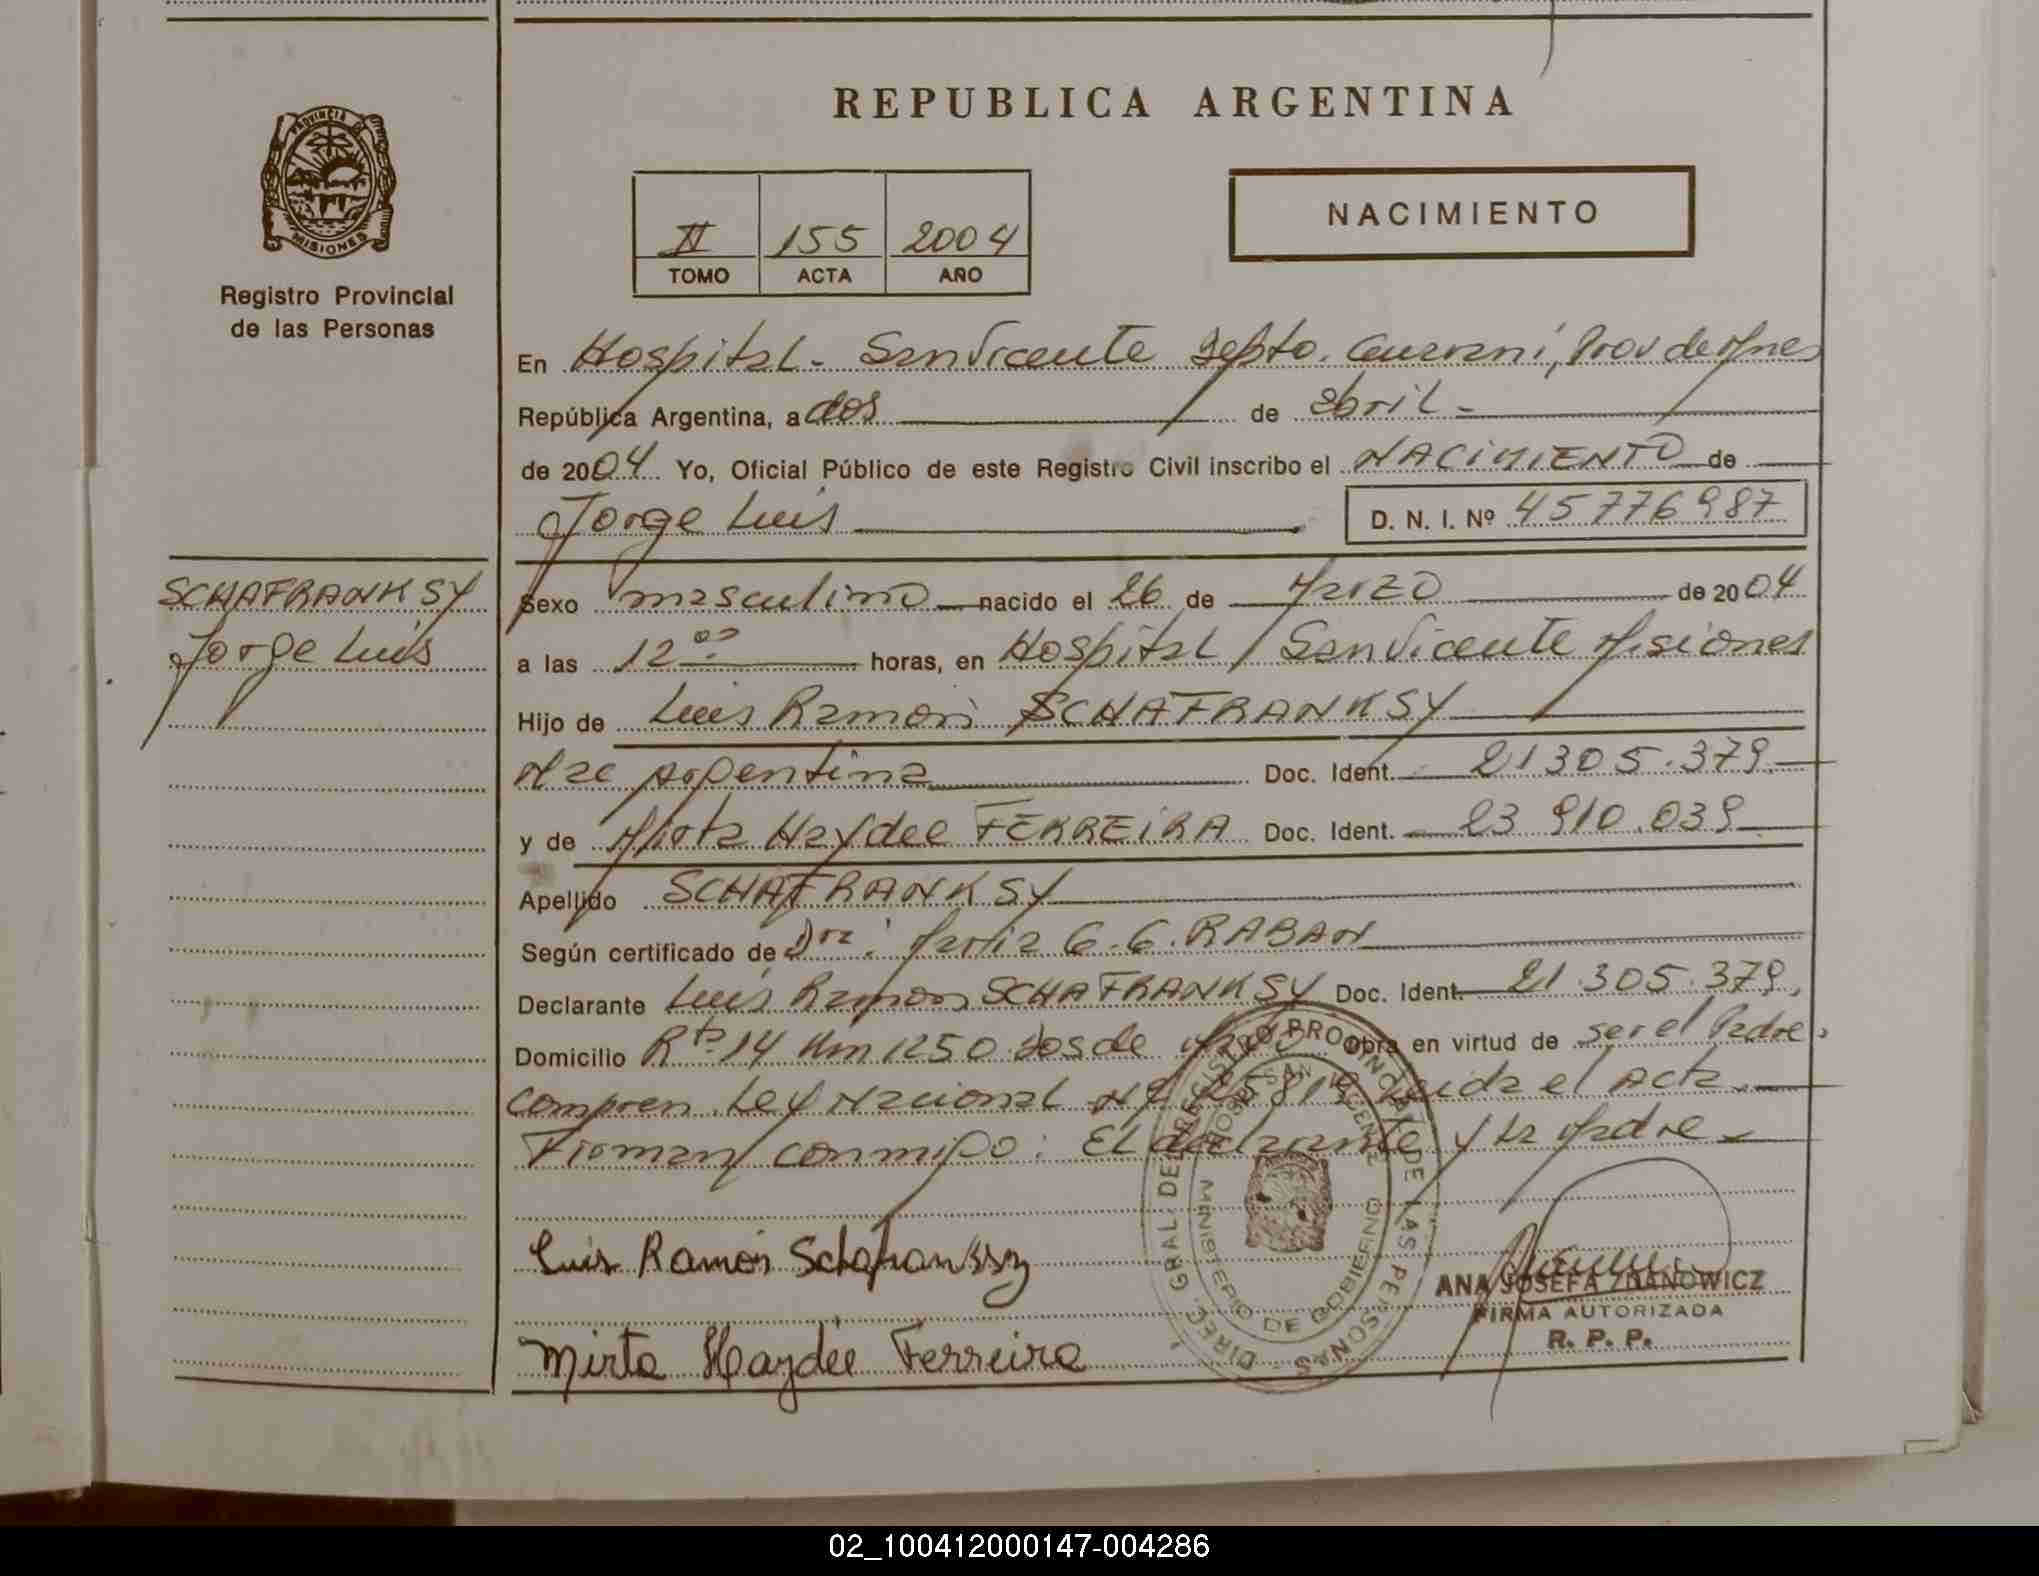 REPUBLICA ARGENTINA
PROVINCIA DE
MISIONES
Registro Provincial
de las Personas
II 155 2004
TOMO ACTA AÑO
NACIMIENTO
En Hospital - San Vicente Depto. Guarani, Prov de Mnes
República Argentina, a dos de abril -
de 2004 Yo, Oficial Público de este Registro Civil inscribo el NACIMIENTO de
Jorge Luis D. N. I. Nº 45776987
SCHAFRANKSY
Jorge Luis
Sexo masculino nacido el 26 de Marzo de 2004
a las 12 00 horas, en Hospital San Vicente Misiones
Hijo de Luis Ramon SCHAFRANKSY
Nac Argentina Doc. Ident. 21305.379.
y de Mirta Haydee FERREIRA Doc. Ident. 23 910.039
Apellido SCHAFRANKSY
Según certificado de Dra: Maria G. G. RABAN
Declarante Luis Ramon SCHAFRANKSY Doc. Ident. 21.305.379.
Domicilio Rta 14 Km 1250 Dos de Mayo Obra en virtud de ser el Padre.
Compren. Ley Nacional Nº 25819 Leida el Acta
Firman conmigo: El declarante y la Madre
Luis Ramon Schafranksy
Mirta Haydée Ferreira
DIREC. GRAL. DEL REGISTRO PROVINCIAL DE LAS PERSONAS
HOSP. SAN VICENTE
MINISTERIO DE GOBIERNO
ANA JOSEFA ZDANOWICZ
FIRMA AUTORIZADA
R. P. P.
02_100412000147-004286